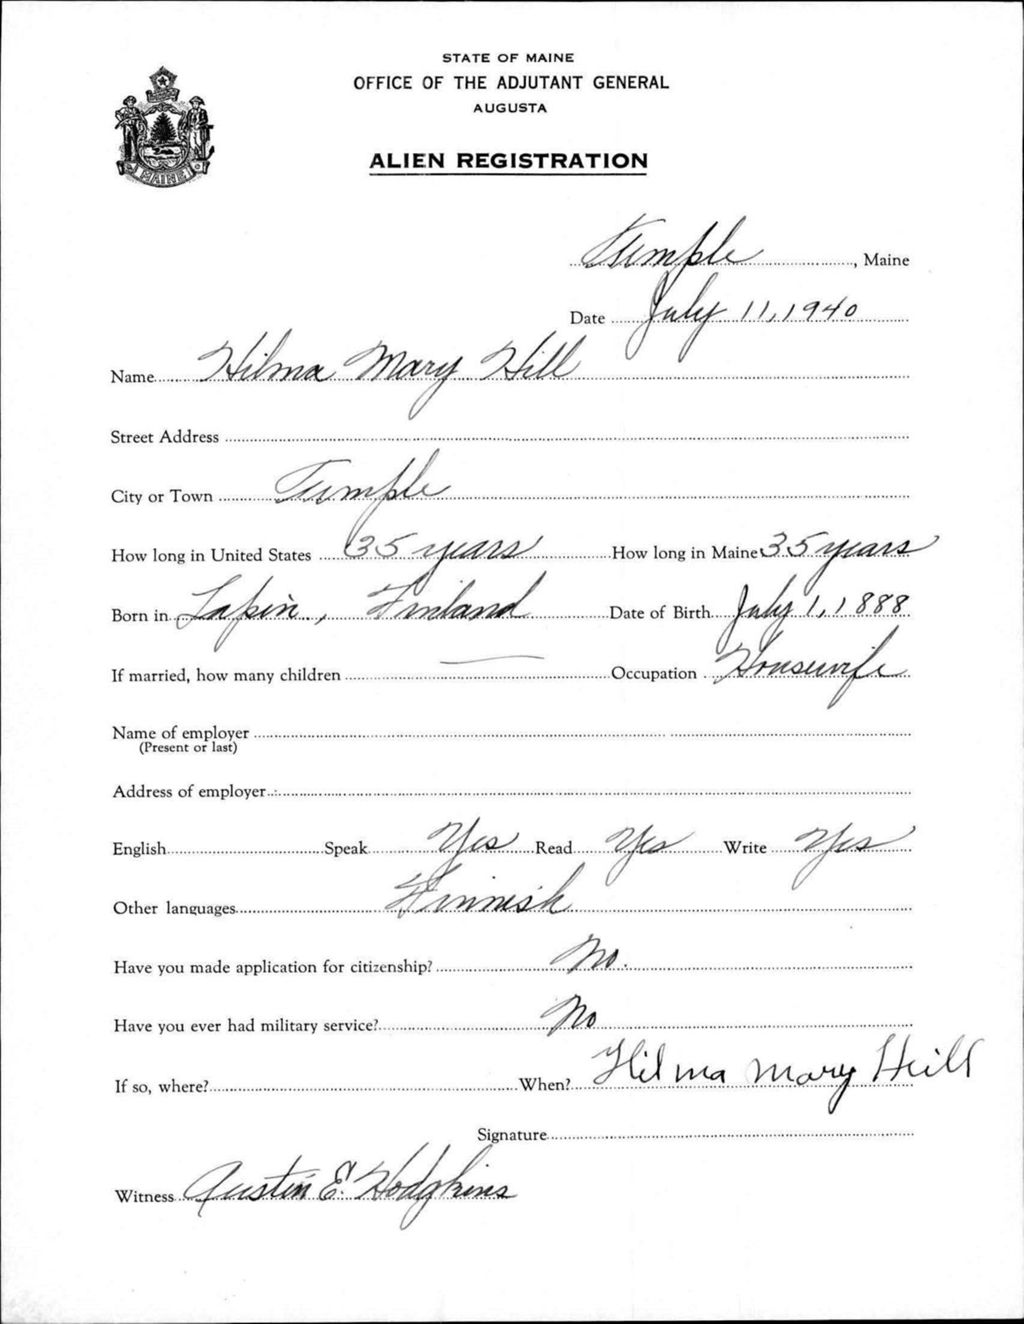 STATE OF MAINE
OFFICE OF THE ADJUTANT GENERAL
AUGUSTA
ALIEN REGISTRATION
MAINE
Temple, Maine
Date July 11, 1940
Name Hilma Mary Hill
Street Address
City or Town Temple
How long in United States 35 years How long in Maine 35 years
Born in Lapin, Finland Date of Birth July 1, 1888
If married, how many children — Occupation Housewife
Name of employer
(Present or last)
Address of employer
English Speak Yes Read Yes Write Yes
Other languages Finnish
Have you made application for citizenship? No.
Have you ever had military service? No
If so, where? When?
Hilma Mary Hill
Signature
Witness Austin E. Hodgkins